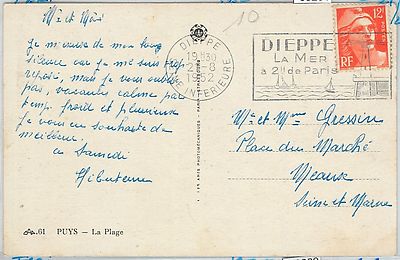 Mr et Mme
Je m'excuse de mon long
silence car je me suis trop
reposé, mais je vous oublie
pas, vacances calme par
temp froid et pluvieux
je vous en souhaite de
meilleur.
a Samedi
10
DIEPPE
1952
SNE INFERIEURE
DIEPPE
LA MER
à 2H de Paris
12F
RF
Mr et Mme Gressin
Place du Marché
Meaux
Seine et Marne
61 PUYS — La Plage